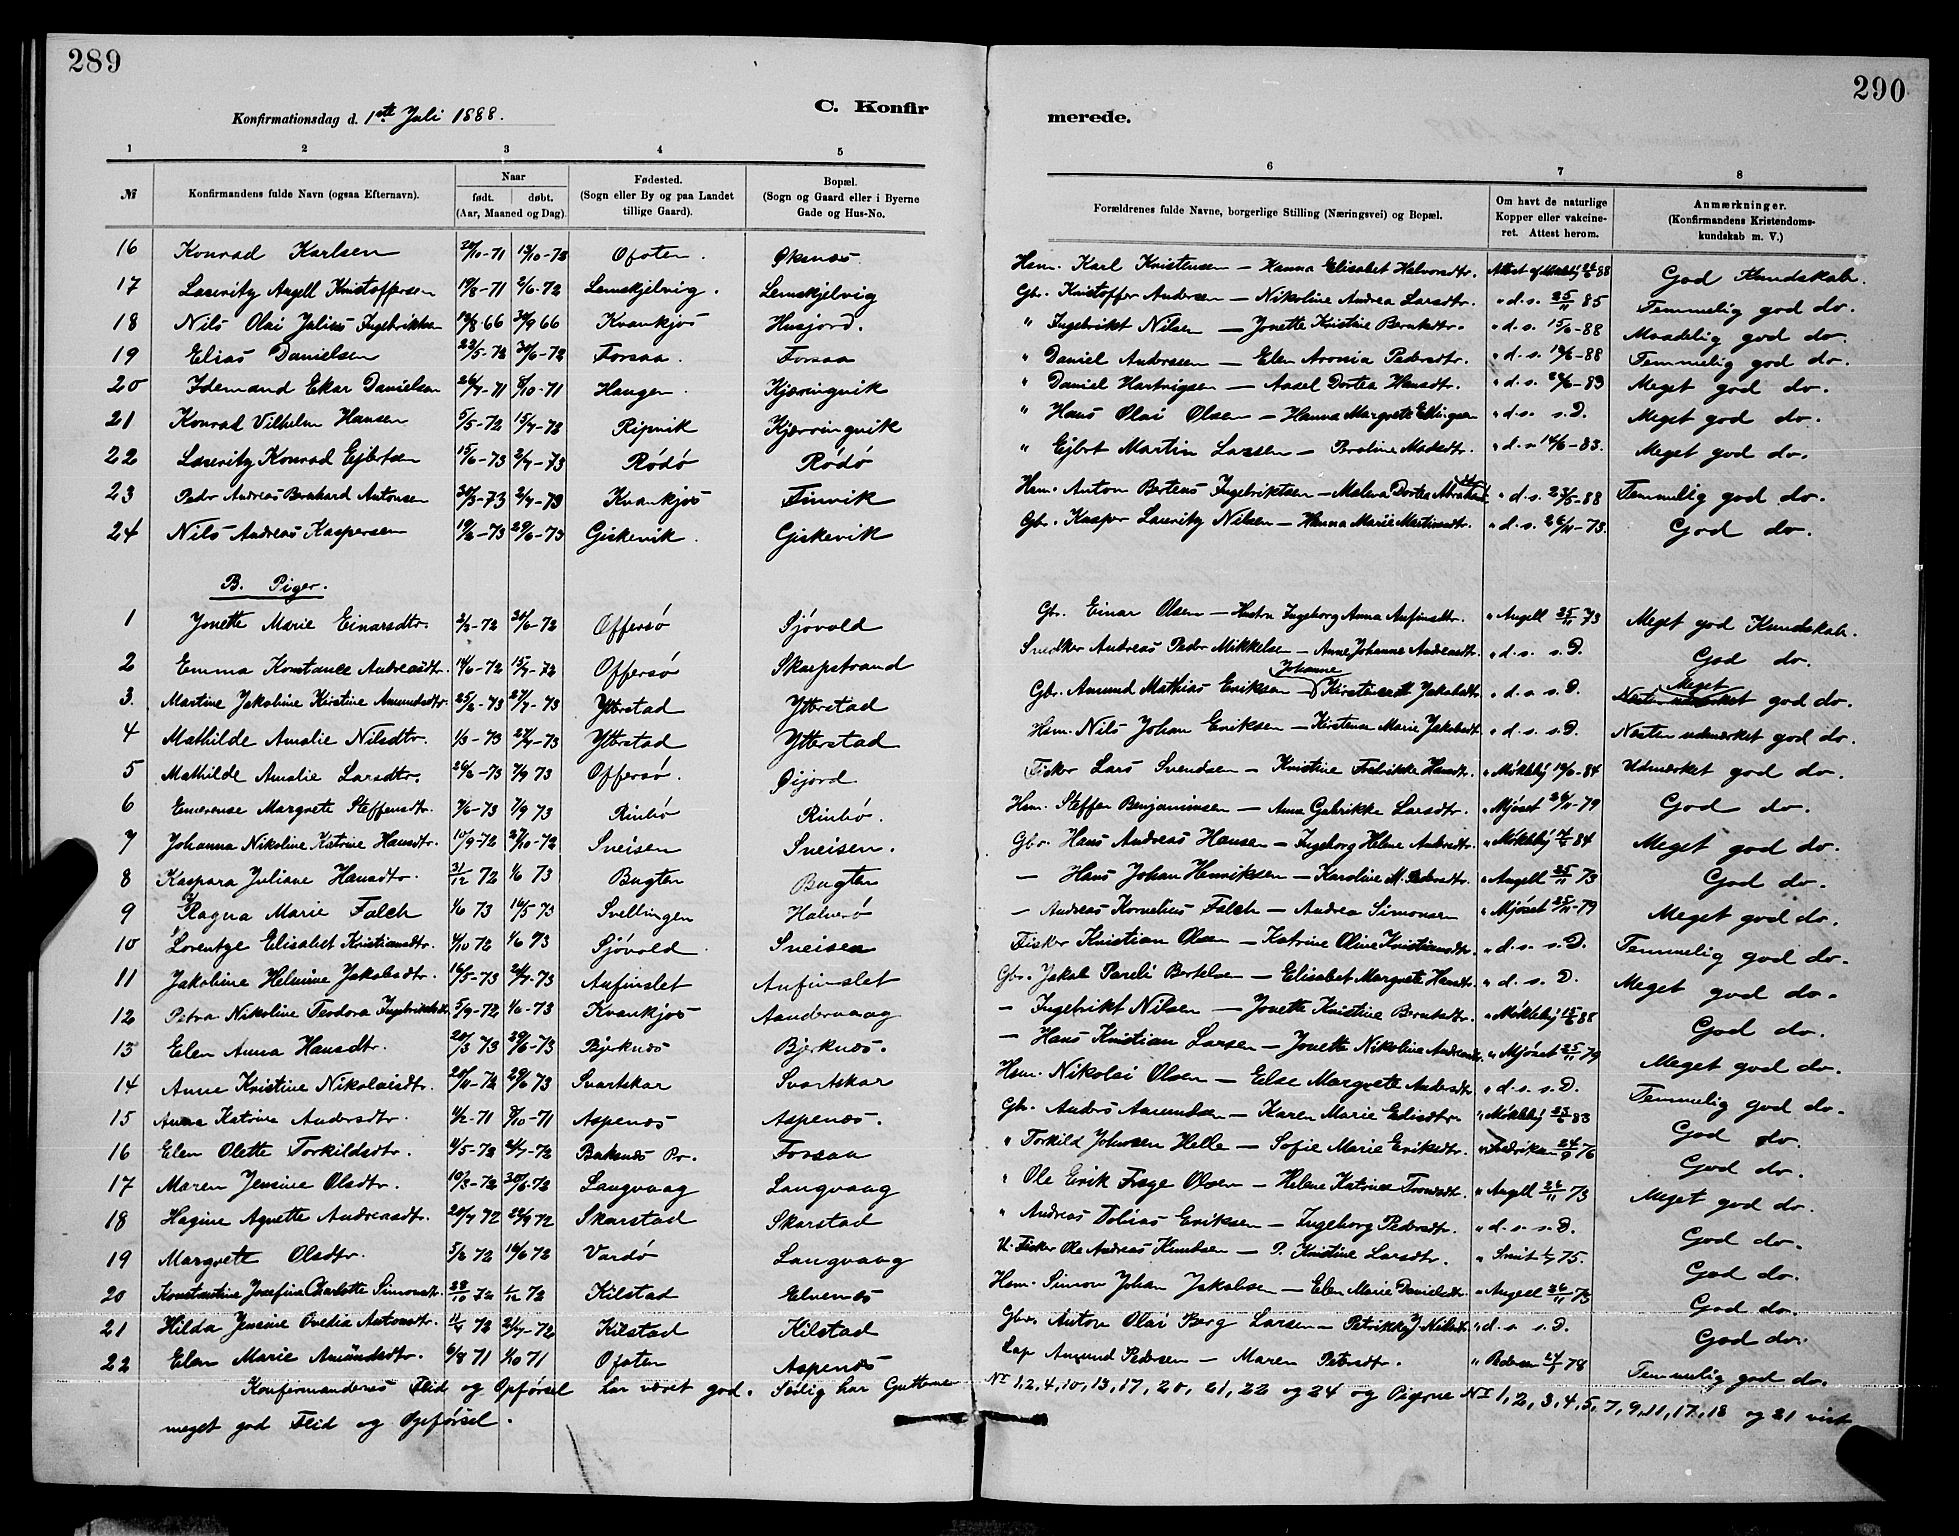 289
290
Konfirmationsdag d. 1ste Juli 1888.
C. Konfir
merede.
1 2 3 4 5 6 7 8
№ Konfirmandens fulde Navn (ogsaa Efternavn). Naar født. døbt. (Aar, Maaned og Dag) Fødested. (Sogn eller By og paa Landet tillige Gaard). Bopæl. (Sogn og Gaard eller i Byerne Gade og Hus-No. Forældrenes fulde Navne, borgerlige Stilling (Næringsvei) og Bopæl. Om havt de naturlige Kopper eller vakcineret. Attest herom. Anmærkninger. (Konfirmandens Kristendomskundskab m. V.)
16 Konrad Karlsen 20/10-71 Ofoten. Øksnæs Hsm. Karl Kristensen — Hanna Elisabet Halvorsdtr. God Kundskab.
17 Laurity Angell Kristoffersen 19/8-71 2/6-72 Lemskjelvig. Lemskjelvig Gbr. Kristoffer Andersen — Nikoline Andrea Larsdtr. " d. s. 25/11 85 Temmelig god do.
18 Nils Olai Julius Ingebriktsen 19/8 66 30/9 66 Kvankjos Husjord. " Ingebrikt Nilsen — Jonette Kristine Berntsdtr. " d. s. 15/6-88 Maadelig god do.
19 Elias Danielsen 22/5-72 30/6-72 Forsaa. Forsaa " Daniel Andersen — Elen Aronia Pedersdtr. " d. s. 19/6-88 Temmelig god do.
20 Idemand Ekar Danielsen 26/7-71 8/10-71 Haugen. Kjæringvik " Daniel Hartvigsen — Aasel Dortea Hansdtr. " d. s. 24/6-83 Meget god do.
21 Konrad Vilhelm Hansen 5/5-72 15/7-72 Ripvik Kjærringvik " Hans Olai Olsen — Hanna Margrete Ellingsen " d. s. s. D. Meget god do.
22 Laurity Konrad Ejbertsen 15/6-73 2/7-73 Rødø Rødø " Ejbert Martin Larsen — Paroline Madsdtr. " d. s 14/6-83. Meget god do.
23 Peder Andreas Bernhard Antonsen 30/3-73 2/7-73 Kvankjos Finvik Hsm. Anton Bertens Ingebriktsen — Malena Dortea " d. s. 23/5-88 Temmelig god do.
24 Nils Andreas Kaspersen 19/6-73 29/6-73 Giskevik. Giskevik Gbr. Kasper Laurity Nilsen — Hanna Marie Martinsdtr. " d. s. 26/11-73. God do.
B. Piger.
1 Jonette Marie Einarsdtr. 2/2-72 30/6-72 Offersø Sjøvold Gbr. Einar Olsen — Hustru Ingeborg Anna Anfinsdtr. " Angell 25/11 73 Meget god Kundskab.
2 Emma Konstance Andreasdtr. 14/6-72 15/7-72 Offersø Skarpstrand Snedker Andreas Peder Mikkelsen — Anne Johanna Andreasdtr. " d. s. s. D. God do.
3. Martine Jakobine Kirstine Amundsdtr 25/2-73 27/7-73 Ytterstad Ytterstad Gbr. Amund Mathias Eriksen — Johanne Jakobsdtr. " d. s. s. D. Meget god do.
4 Mathilde Amalie Nilsdtr. 1/3-73 27/7-73 Ytterstad Ytterstad Hsm. Nils Johan Eriksen — Kirstena Marie Jakobsdtr. " d. s. s. D. Næsten udmerket god do.
5 Mathilde Amalie Larsdtr. 26/6-73 7/9 73 Offersø. Øijord Fisker Lars Svendsen — Kristine Fredrikke Hansdtr. " Møkleby 19/6-84 Udmerket god do.
6 Emerense Margrete Steffensdtr. 7/6-73 7/9 73 Rinbø Rinbø. Hsm. Steffen Benjaminsen — Anna Gjertrikke Larsdtr. " Mjøset 26/11-79 God do.
7 Johanna Nikoline Katrine Hansdtr. 10/9-72 27/10-72 Sneisen Sneisen. Gbr. Hans Andreas Hansen — Ingeborg Helene Andersdtr. " Møkleby 84 Meget god do.
8 Kaspara Juliane Hansdtr. 31/12 72 1/6 73 Bugten Bugten — Hans Johan Henriksen — Karoline M. Pedersdtr. " Angell 25/11 73 God do.
9 Ragna Marie Falch 1/6 73 16/5 73 Svellingen Halvarø — Andreas Kornelius Falch — Andrea Simonsen " Mjøset 25/11-79 Meget god do.
10 Lorentze Elisabet Kristiansdtr. 4/10 72 1/6 73 Sjøvold Sneisen Fisker Kristian Olsen — Katrine Oline Kristiansdtr. " d. s. s. D. Temmelig god do.
11 Jakobine Helmine Jakobsdtr. 16/5-73 24/7-73 Anfinslet Anfinslet Gbr. Jakob Pareli Bertelsen — Elisabet Margrete Hansdtr. " d. s. D. Meget god do.
12 Petra Nikoline Teodora Ingebriktsdtr. 5/9-72 1/6-73 Kvankjos Aandervaag — Ingebrikt Nilsen — Jonette Kristine Berntsdtr. " Møkleby 15/6 88 God do.
13 Elen Anna Hansdtr. 20/3 73 29/6-73 Bjerknæs Bjerknæs. — Hans Kristian Larsen — Jonette Nikoline Andreasdtr. " Mjøset 25/11 79 Meget god do.
14 Anne Kristine Nikolaisdtr. 20/11-72 29/6 73 Svartskar Svartskar Hsm. Nikolai Olsen — Else Margrete Andersdtr " d. s. s. D. Temmelig god do.
15 Anna Katrine Andersdtr. 4/2-71 8/10-71 Aspenæs Aspenæs. Gbr. Anders Amundsen — Karen Marie Edisdtr " Møkleby 25/6 83 God do.
16 Elen Olette Torkildsdtr. 4/5-72 24/7-72 Buksnæs Pr. Forsaa " Torkild Johnsen Helle — Sofie Marie Eriksdtr. " Fredriksen 24/9 76 God do.
17 Maren Jensine Olsdtr. 10/3-72 30/6-72 Langvaag Langvaag " Ole Erik Frage Olsen — Helene Katrine Tronsdtr. " Angell 26/11 73 Meget god do.
18 Hagine Agnette Andreasdtr. 20/7 72 22/9 72 Skarstad Skarstad " Andreas Tobias Eriksen — Ingeborg Pedersdtr. " d. s. s. D. God do.
19 Margrete Olsdtr. 5/6 72 16/6 72 Vardø Langvaag U. Fisker Ole Andreas Knudsen — P. Kristine Larsdtr. " Smit 1/7 75. God do.
20 Konstantine Josefine Charlotte Simonsdtr. 28/10 72 1/12 72 Kilstad Elvenæs Hsm. Simon Johan Jakobsen — Elen Marie Danielsdtr. " Angell 26/11 73 God do.
21 Hilda Jensine Ovedia Antonsdtr. 11/4 72 21/7-72 Kilstad Kilstad Gbr. Anton Olai Berg Larsen — Petrikke J. Nilsdtr. " d. s. s. D. God do.
22 Elen Marie Amundsdtr. 6/8 71 1/10 71 Ofoten Aspenæs Lap Amund Pedersen — Maren Petersdtr. " Pedersen 78 Temmelig god do.
Konfirmandernes Flid og Opførsel har været god. Særlig har Gutterne №: 1, 2, 4, 10, 13, 17, 20, 21, 22 og 24 og Pigerne №: 1, 2, 3, 4, 5, 7, 9, 11, 17, 18 og 21 vist
meget god Flid og Opførsel.